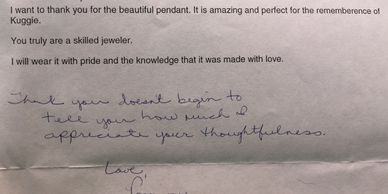 I want to thank you for the beautiful pendant. It is amazing and perfect for the rememberence of
Kuggie.
You truly are a skilled jeweler.
I will wear it with pride and the knowledge that it was made with love.
Thank you doesnt begin to
tell you how much I
appreciate your thoughtfulness.
Love,